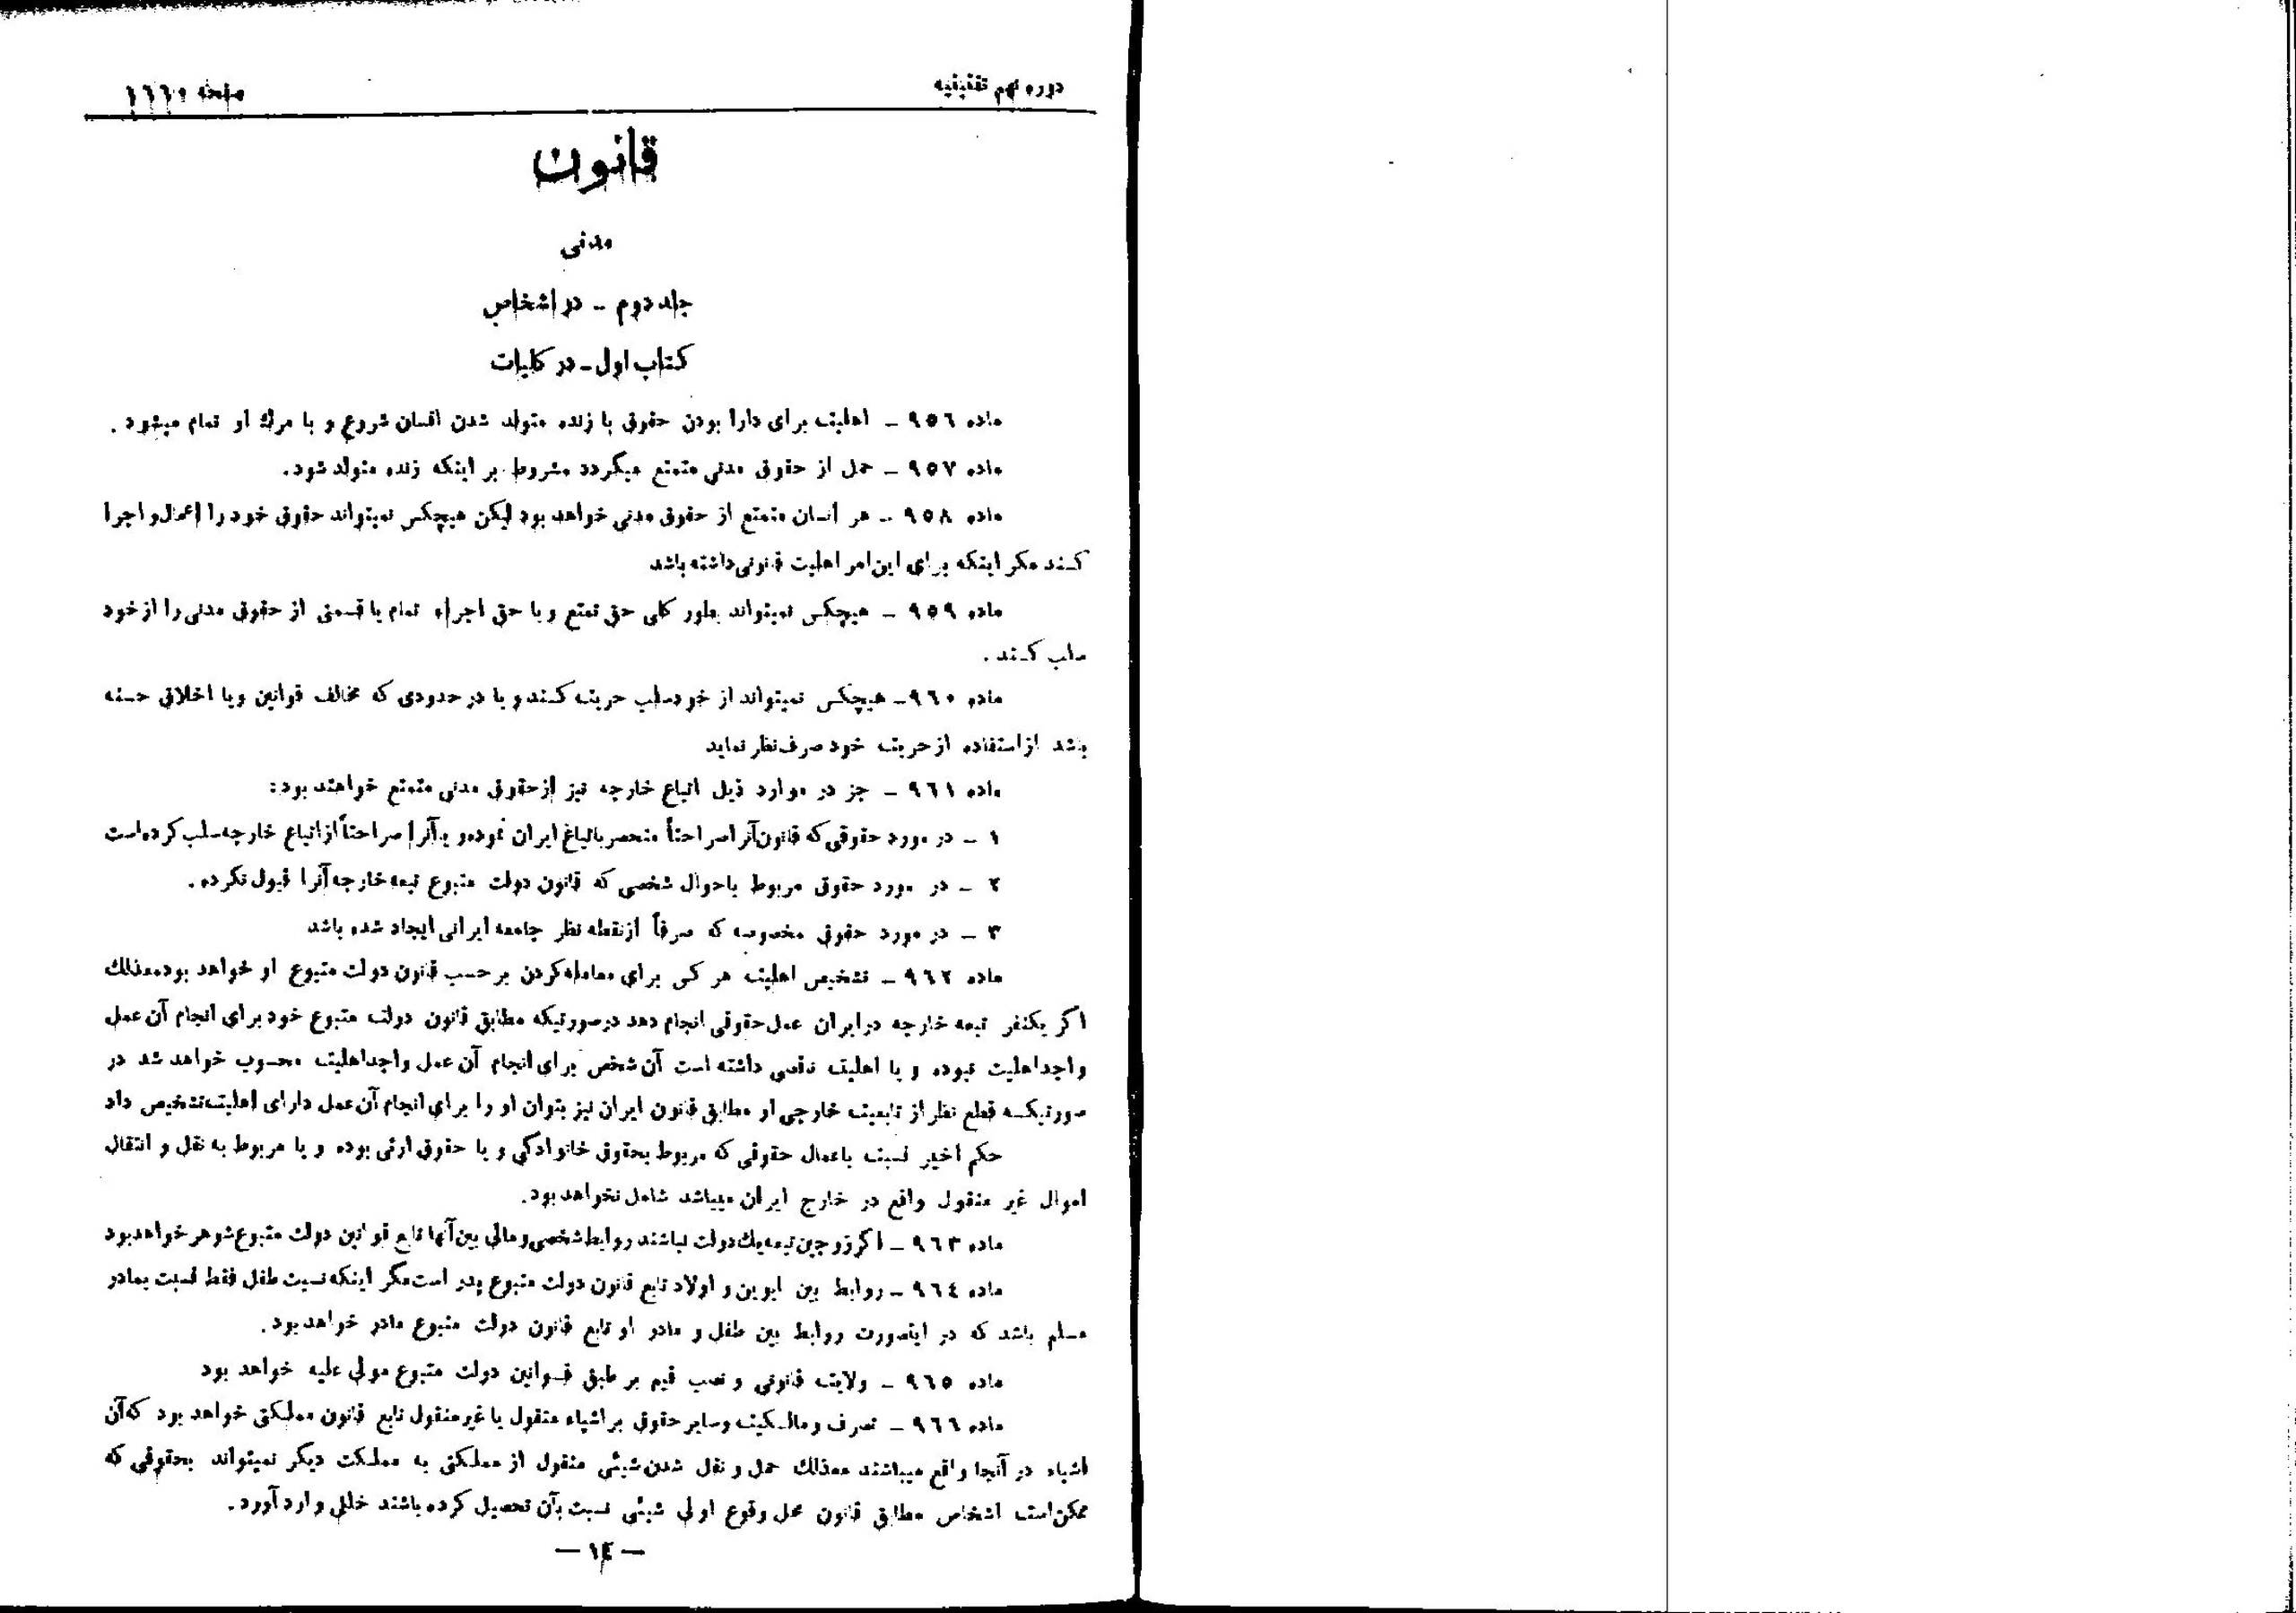 دوره نهم تقنینیه
صفحه ۱٦٦۰
قانون
مدنی
جلد دوم ـ در اشخاص
کتاب اول ـ در کلیات
ماده ۹٥٦ ـ اهلیت برای دارا بودن حقوق با زنده متولد شدن انسان شروع و با مرگ او تمام میشود .
ماده ۹٥۷ ـ حمل از حقوق مدنی متمتع میگردد مشروط بر اینکه زنده متولد شود.
ماده ۹٥۸ ـ هر انسان متمتع از حقوق مدنی خواهد بود لیکن هیچکس نمیتواند حقوق خود را اعمال و اجرا
کند مگر اینکه برای این امر اهلیت قانونی داشته باشد
ماده ۹٥۹ ـ هیچکس نمیتواند بطور کلی حق تمتع و یا حق اجراء تمام یا قسمتی از حقوق مدنی را از خود
سلب کند .
ماده ۹٦۰ ـ هیچکس نمیتواند از خود سلب حریت کند و یا در حدودی که مخالف قوانین و یا اخلاق حسنه
باشد از استفاده از حریت خود صرف نظر نماید
ماده ۹٦۱ ـ جز در موارد ذیل اتباع خارجه نیز از حقوق مدنی متمتع خواهند بود:
۱ ـ در مورد حقوقی که قانون آنرا صراحتاً منحصر باتباع ایران نموده و یا آنرا صراحتاً از اتباع خارجه سلب کرده است
۲ ـ در مورد حقوق مربوط باحوال شخصی که قانون دولت متبوع تبعه خارجه آنرا قبول نکرده .
۳ ـ در مورد حقوق مخصوصه که صرفاً از نقطه نظر جامعه ایرانی ایجاد شده باشد
ماده ۹٦۲ ـ تشخیص اهلیت هر کس برای معامله کردن بر حسب قانون دولت متبوع او خواهد بود معذلك
اگر یکنفر تبعه خارجه در ایران عمل حقوقی انجام دهد در صورتیکه مطابق قانون دولت متبوع خود برای انجام آن عمل
واجد اهلیت نبوده و یا اهلیت ناقصی داشته است آن شخص برای انجام آن عمل واجد اهلیت محسوب خواهد شد در
صورتیکه قطع نظر از تابعیت خارجی او مطابق قانون ایران نیز بتوان او را برای انجام آن عمل دارای اهلیت تشخیص داد
حکم اخیر نسبت باعمال حقوقی که مربوط بحقوق خانوادگی و یا حقوق ارثی بوده و یا مربوط به نقل و انتقال
اموال غیر منقول واقع در خارج ایران میباشد شامل نخواهد بود.
ماده ۹٦۳ ـ اگر زوجین تبعه یك دولت نباشند روابط شخصی و مالی بین آنها تابع قوانین دولت متبوع شوهر خواهد بود
ماده ۹٦٤ ـ روابط بین ابوین و اولاد تابع قانون دولت متبوع پدر است مگر اینکه نسبت طفل فقط نسبت بمادر
مسلم باشد که در اینصورت روابط بین طفل و مادر او تابع قانون دولت متبوع مادر خواهد بود .
ماده ۹٦٥ ـ ولایت قانونی و نصب قیم بر طبق قوانین دولت متبوع مولی علیه خواهد بود
ماده ۹٦٦ ـ تصرف و مالکیت و سایر حقوق بر اشیاء منقول یا غیر منقول تابع قانون مملکتی خواهد بود که آن
اشیاء در آنجا واقع میباشند معذلك حمل و نقل شدن شیئی منقول از مملکتی به مملکت دیگر نمیتواند بحقوقی که
ممکن است اشخاص مطابق قانون محل وقوع اولی شیئی نسبت بآن تحصیل کرده باشند خللی وارد آورد.
— ۱٤ —